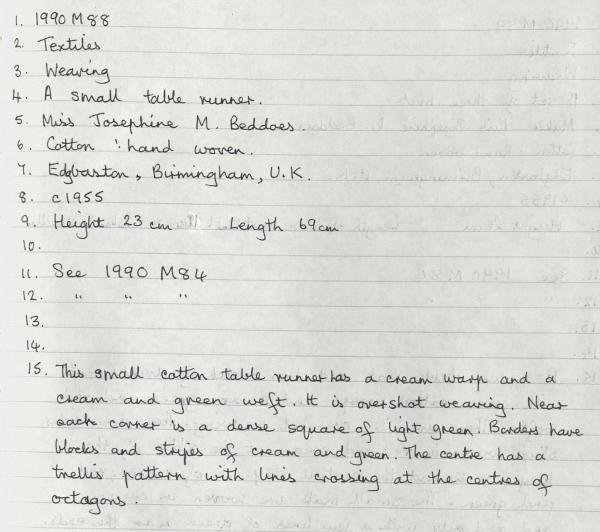 1. 1990 M88
2. Textiles
3. Weaving
4. A small table runner.
5. Miss Josephine M. Beddoes.
6. Cotton : hand woven.
7. Edgbaston, Birmingham, U.K.
8. c1955
9. Height 23 cm Length 69cm
10.
11. See 1990 M84
12. " " "
13.
14.
15. This small cotton table runner has a cream warp and a
cream and green weft. It is overshot weaving. Near
each corner is a dense square of light green. Borders have
blocks and stripes of cream and green. The centre has a
trellis pattern with lines crossing at the centres of
octagons.